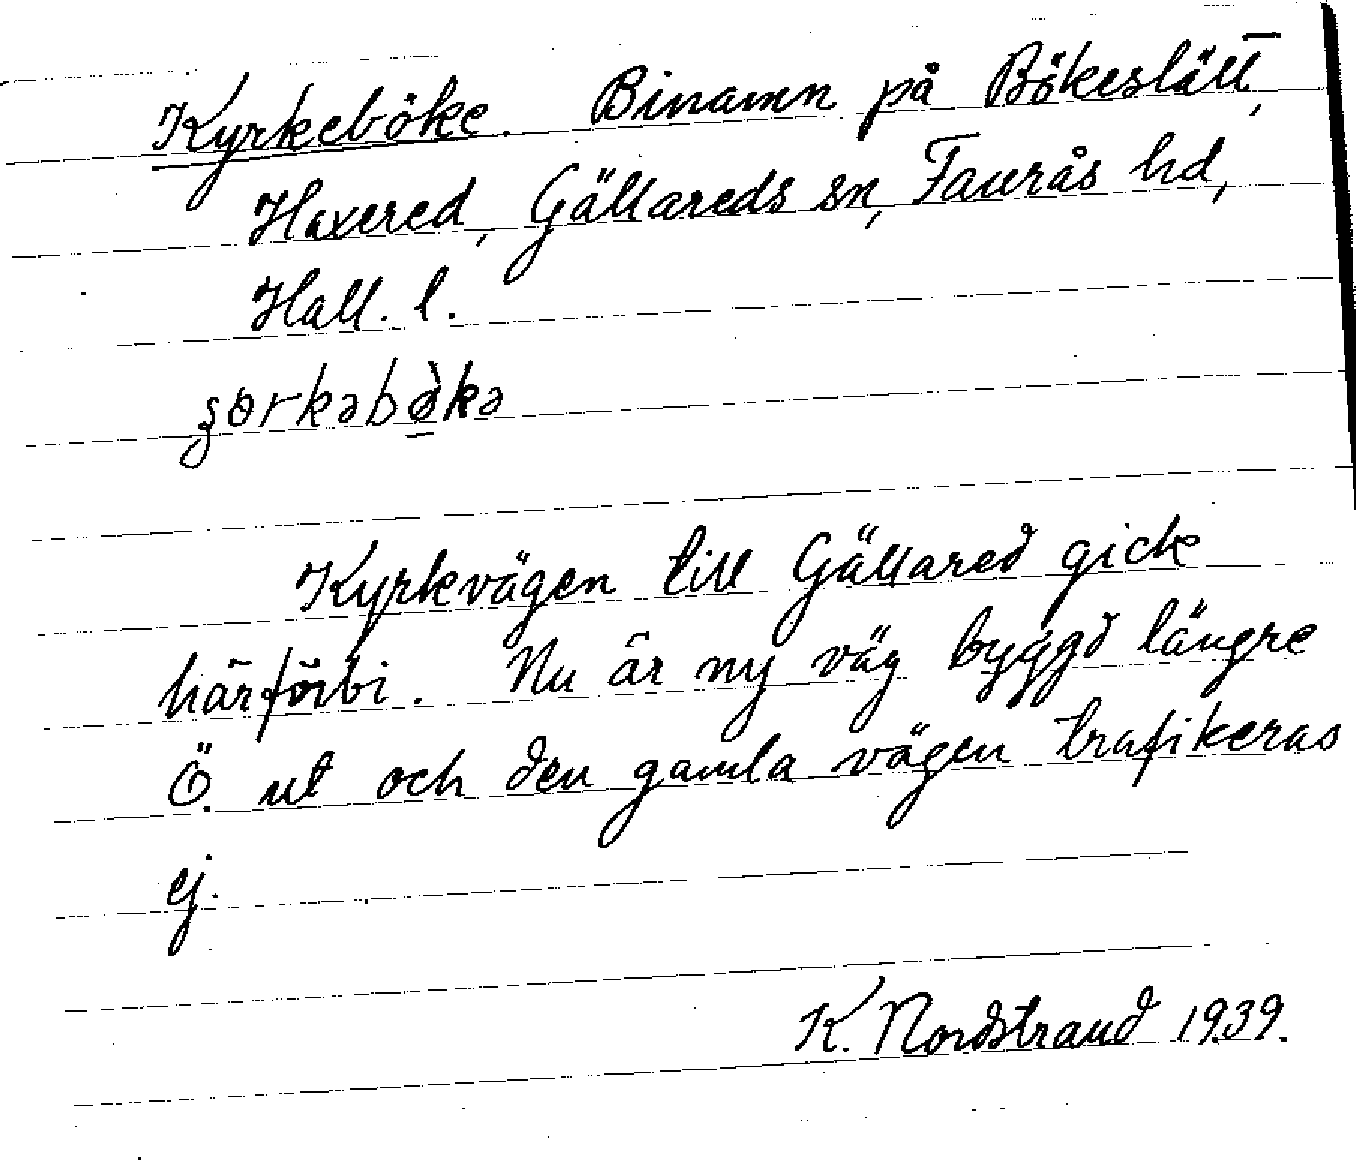 Kyrkeböke. Binamn på Bökeslätt,
Haxered, Gällareds sn, Faurås hd,
Hall. l.
Kyrkvägen till Gällared gick
härförbi. Nu är ny väg byggd längre
Ö. ut och den gamla vägen trafikeras
ej.
K. Nordstrand 1939.